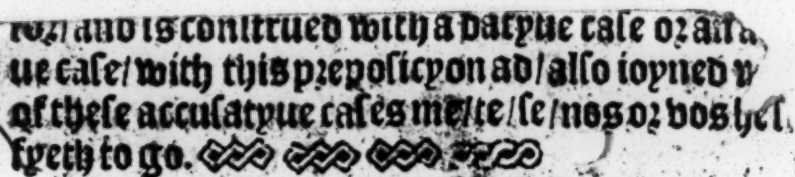 for/ and is conſtrued with a datyue caſe or an a
ue caſe/ with this prepoſicyon ad/ alſo ioyned
of theſe accuſatyue caſes me/ te/ ſe/ nos or vos
ſyeth to go.